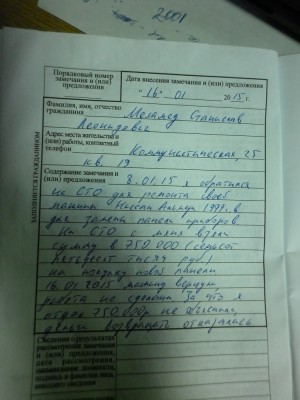 2001
Порядковый номер
замечания и (или)
предложения
Дата внесения замечания и (или) предложения
"16" 01 2015 г.
Фамилия, имя, отчество
гражданина
Станислав
Леонидович
Адрес места жительства и
(или) работы, контактный
телефон
Коммунистическая, 25
кв. 19
Содержание замечания и
(или) предложения
8.01.15 я обратился
на СТО для ремонта своей
машины Ниссан 1999г.в
для замены панели приборов.
На СТО с меня взяли
сумму в 750.000 (семьсот
пятьдесят тысяч руб)
на покупку новой панели
16.01.2015 машину вернули
работа не сделана за что я
отдал 750.000р не объяснили,
деньги возвращать отказались.
ЗАПОЛНЯЕТСЯ ГРАЖДАНИНОМ
Сведения о результатах
рассмотрения замечания
и (или) предложения,
дата рассмотрения,
наименование должности,
подпись и фамилия лица,